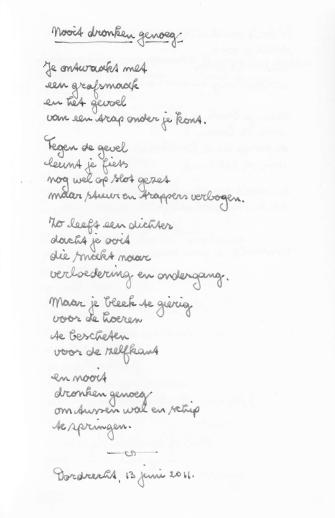 Nooit dronken genoeg.
Je ontwaakt met
een grafsmaak
en het gevoel
van een trap onder je kont.
Tegen de gevel
leunt je fiets
nog wel op slot gezet
maar stuur en trappers verbogen.
Zo leeft een dichter
dacht je ooit
die snakt naar
verloedering en ondergang.
Maar je bleek te gierig
voor de hoeren
te bescheten
voor de zelfkant
en nooit
dronken genoeg
om tussen wal en schip
te springen.
Dordrecht, 13 juni 2011.